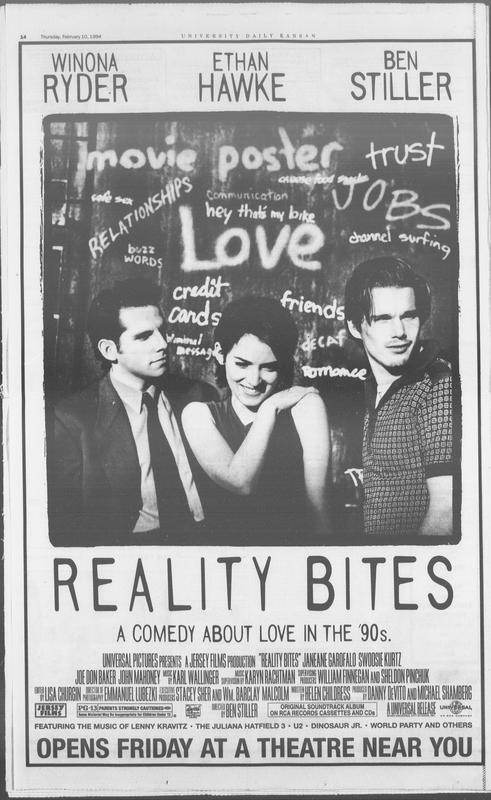 14
Thursday, February 10, 1994
UNIVERSITY DAILY KANSAN
WINONA RYDER
ETHAN HAWKE
BEN STILLER
movie poster
trust
choose food snacks
safe sex
RELATIONSHIPS
communication
JOBS
hey that's my bike
LOVE
channel surfing
buzz
WORDS
credit
cards
friends
minimal
message
decaf
romance
REALITY BITES
A COMEDY ABOUT LOVE IN THE '90s.
UNIVERSAL PICTURES PRESENTS A JERSEY FILMS PRODUCTION "REALITY BITES" JANEANE GAROFALO SWOOSIE KURTZ
JOE DON BAKER JOHN MAHONEY MUSIC BY KARL WALLINGER MUSIC SUPERVISION BY KARYN RACHTMAN SUPERVISING PRODUCERS WILLIAM FINNEGAN AND SHELDON PINCHUK
EDITED BY LISA CHURGIN DIRECTOR OF PHOTOGRAPHY EMMANUEL LUBEZKI EXECUTIVE PRODUCERS STACEY SHER AND WM. BARCLAY MALCOLM WRITTEN BY HELEN CHILDRESS PRODUCED BY DANNY DEVITO AND MICHAEL SHAMBERG
JERSEY FILMS PG-13 PARENTS STRONGLY CAUTIONED Some Material May Be Inappropriate for Children Under 13 DIRECTED BY BEN STILLER ORIGINAL SOUNDTRACK ALBUM ON RCA RECORDS CASSETTES AND CDs A UNIVERSAL RELEASE UNIVERSAL
FEATURING THE MUSIC OF LENNY KRAVITZ • THE JULIANA HATFIELD 3 • U2 • DINOSAUR JR. • WORLD PARTY AND OTHERS
OPENS FRIDAY AT A THEATRE NEAR YOU